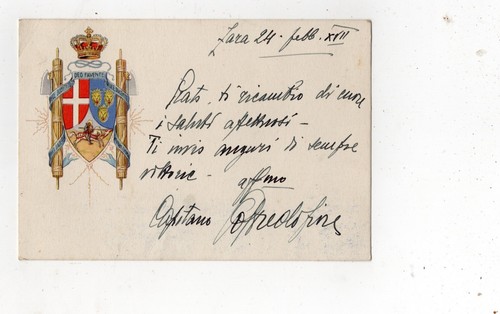 DEO FAVENTE
Zara 24. febb. XVII
ti ricambio di cuore
i saluti affettuosi -
Ti invio auguri di sempre
vittorie - affmo
Capitano